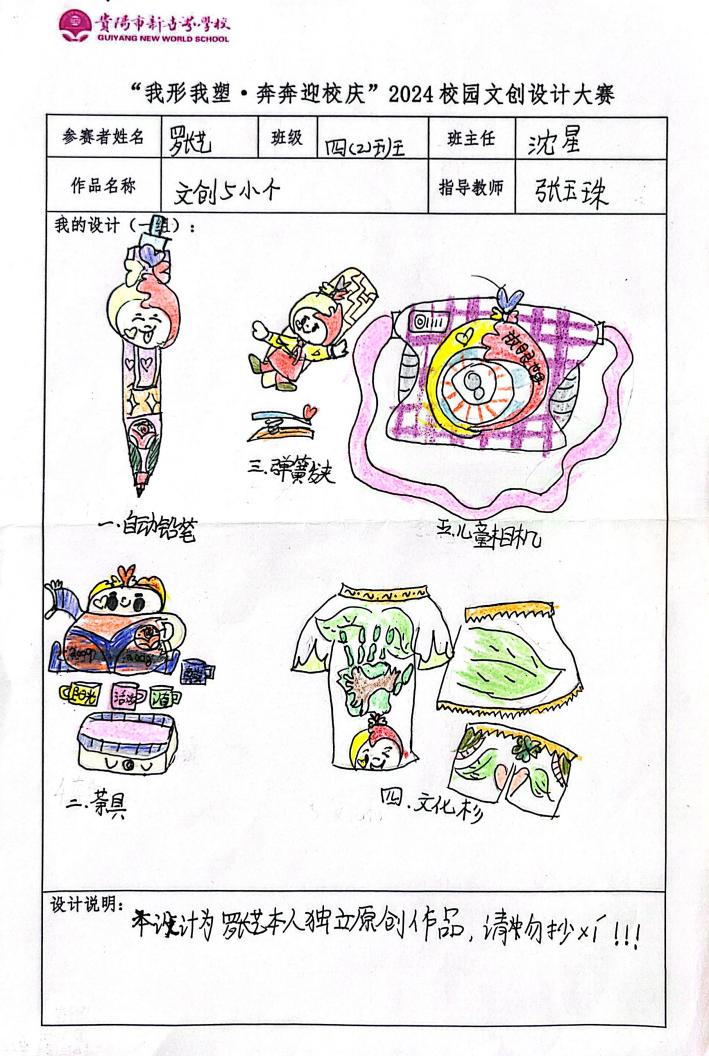 贵阳市新世界学校
GUIYANG NEW WORLD SCHOOL
“我形我塑·奔奔迎校庆”2024校园文创设计大赛
参赛者姓名 罗长艺 班级 四(2)班 班主任 沈星
作品名称 文创5小个 指导教师 张玉珠
我的设计(一组):
三.弹簧发夹
一.自动铅笔
五.儿童相机
2009
阳光
二.茶具
四.文化衫
设计说明:
本设计为罗长艺本人独立原创作品,请勿抄xí!!!